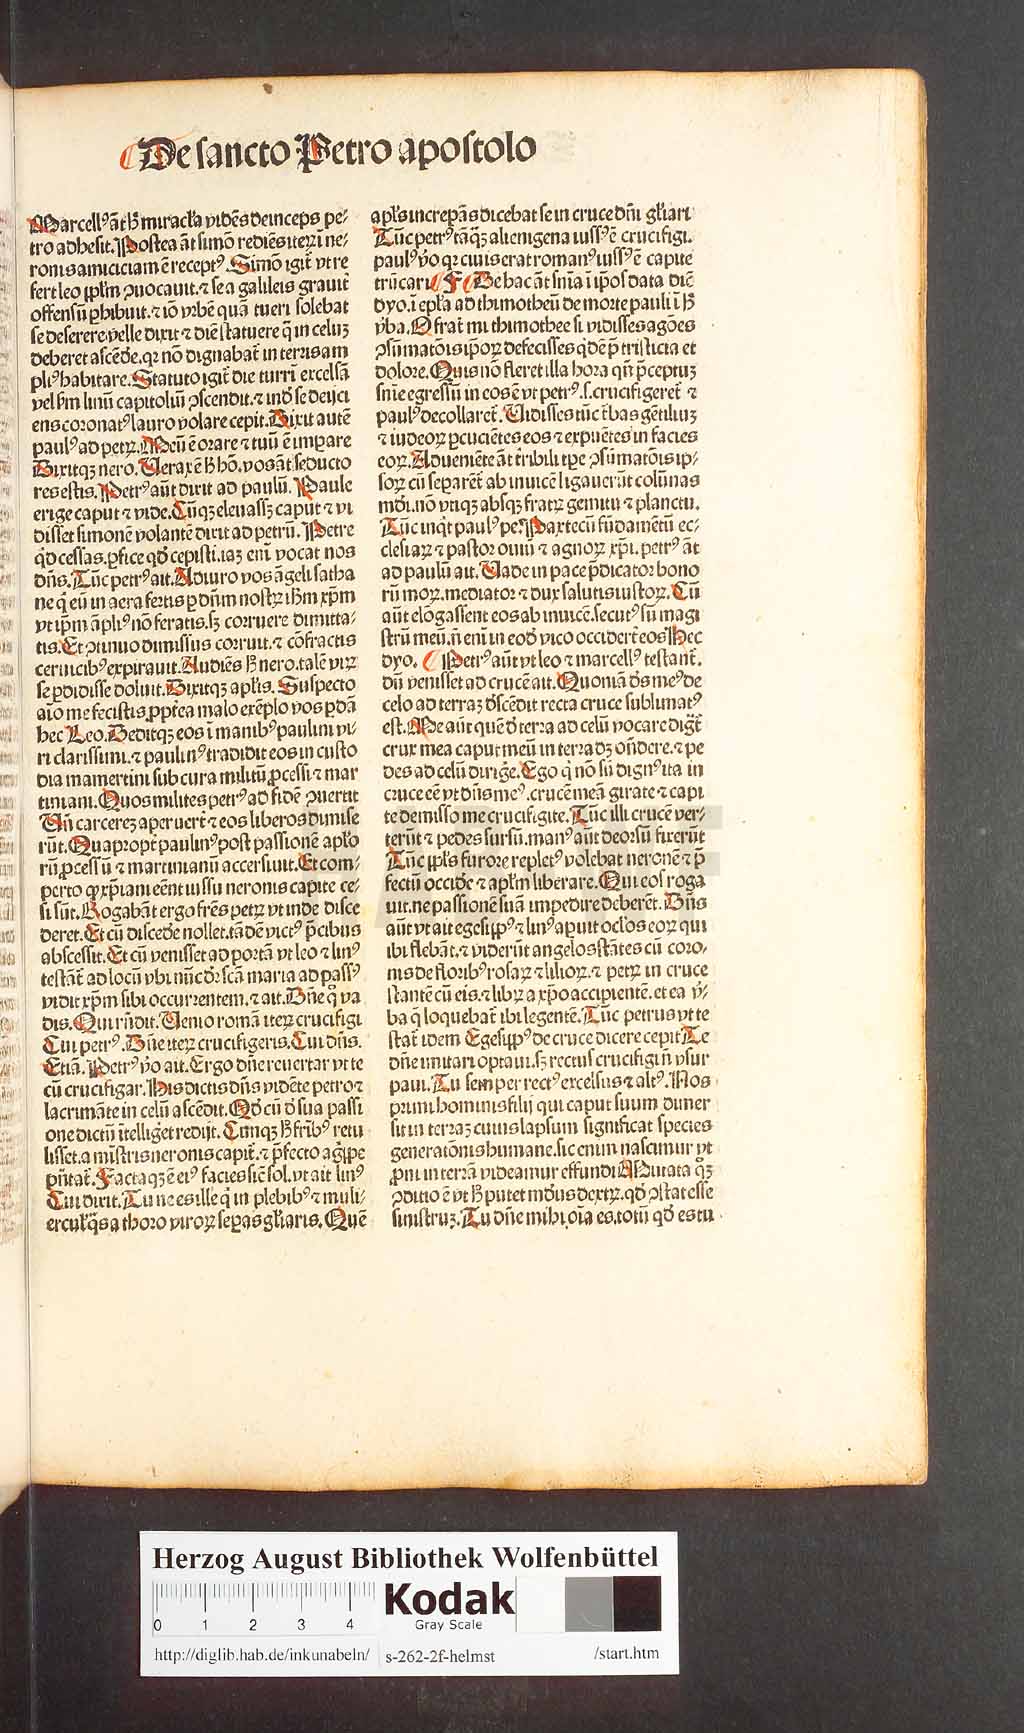 De sancto Petro apostolo
Marcellꝰ āt h̄ miracl'a vidēs deinceps pe-
tro adhesit. Postea āt simō rediēs iteꝝ ī ne-
ronis amiciciam ē receptꝰ. Simō igit̄ vt re
fert leo ipl'm ꝯuocauit. ⁊ se a galileis grauit̄
offensū ꝑhibuit. ⁊ iō vrbē quā tueri solebat
se deserere velle dixit ⁊ diē statuere q̄ in celuꝫ
deberet ascēdē. qꝛ nō dignabat̄ in terris am
pliꝰ habitare. Statuto igit̄ die turrī excelsā
vel s'm linū capitoliū ꝯscendit. ⁊ indē se deijci
ens coronatꝰ lauro volare cepit. Dixit autē
paulꝰ ad petꝝ. Meū ē orare ⁊ tuū ē impare
Dixitqꝫ nero. Verax ē h̄ hō. vos āt seducto
res estis. Petrꝰ aūt dixit ad paulū. Paule
erige caput ⁊ vide. Cūqꝫ eleuassꝫ caput ⁊ vi
disset simonē volantē dixit ad petrū. Petre
qd̄ cessas. ꝑfice qd̄ cepisti. iaꝫ em̄ vocat nos
dn̄s. Tūc petrꝰ ait. Adiuro vos āgeli satha
ne q̄ eū in aera fertis ꝑ dn̄m nostꝝ ih̄m xp̄m
vt ip̄m āpliꝰ nō feratis. sꝫ corruere dimitta-
tis. Et ꝯtinuo dimissus corruit. ⁊ cōfractis
ceruicibꝰ expirauit. Audiēs h̄ nero. talē viꝝ
se ꝑdidisse doluit. Dixitqꝫ apl'is. Suspecto
aīo me fecistis. ꝓpt̄ea malo exēplo vos ꝑdā
hec Leo. Deditqꝫ eos ī manibꝰ paulini vi-
ri clarissimi. ⁊ paulinꝰ tradidit eos in custo
dia mamertini sub cura militū ꝓcessi ⁊ mar
tiniani. Quos milites petrꝰ ad fidē ꝯuertit
Un̄ carcerez aperuert̄ ⁊ eos liberos dimise
rūt. Quapropt̄ paulinꝰ post passionē apl'o
rū ꝓcessū ⁊ martinianū accersiuit. Et com-
perto ꝙ xp̄iani eēnt iussu neronis capite ce-
si sūt. Rogabāt ergo frēs petꝝ vt inde disce
deret. Et cū discedē nollet. tādē victꝰ p̄cibus
abscessit. Et cū venisset ad portā vt leo ⁊ linꝰ
testāt̄ ad locū vbi nūc dr̄ scā maria ad passꝰ
vidit xp̄m sibi occurrentem. ⁊ ait. Dn̄e q̄ va
dis. Qui rn̄dit. Venio romā iteꝝ crucifigi
Cui petrꝰ. Dn̄e iteꝝ crucifigeris. Cui dn̄s.
Etiā. Petrꝰ v̄o ait. Ergo dn̄e reuertar vt te
cū crucifigar. His dictis dn̄s vidēte petro ⁊
lacrimāte in celū ascēdit. Qd̄ cū d̄ sua passi
one dictū ītelliget̄ redijt. Cunqꝫ h̄ fr̄ibꝰ retu
lisset. a mīstris neronis capit̄. ⁊ p̄fecto agp̄pe
pn̄tat̄. Factaqꝫ ē eiꝰ facies sic̄ sol. vt ait linꝰ
Cui dixit. Tu ne es ille q̄ in plebibꝰ ⁊ muli-
erculꝗs a thoro viroꝝ seꝑas gl'iaris. Quē
apl's increpās dicebat se in cruce dn̄i gl'iari
Tūc petrꝰ tāqꝫ alienigena iussꝰ ē crucifigi.
paulꝰ v̄o qꝛ ciuis erat romanꝰ iussꝰ ē capite
trūcari. F De hac āt sn̄ia ī ip̄os data diē
dyo. ī epl'a ad thimotheū de morte pauli ī h̄
v̄ba. O frat̄ mi thimothee si vidisses agōes
ꝯsūmatōis ip̄oꝝ defecisses q̄dē p̄ tristicia et
dolore. Quis nō fleret illa hora qn̄ p̄ceptuꝫ
sn̄ie egressū in eos ē vt petrꝰ .s. crucifigeret̄ ⁊
paulꝰ decollaret̄. Vidisses tūc t̄bas gētiliuꝫ
⁊ iudeoꝝ ꝑcuciētes eos ⁊ expuētes in facies
eoꝝ. Adueniēte āt t̄ribili tꝑe ꝯsūmatōis ip-
soꝝ cū separēt̄ ab inuicē ligauerūt colūnas
mūdi. nō vtiqꝫ absqꝫ fratꝝ gemitu ⁊ planctu.
Tūc inq̄t paulꝰ peꝰ. Pax tecū fūdamētū ec-
clesiaꝝ ⁊ pastor ouiū ⁊ agnoꝝ xp̄i. petrꝰ āt
ad paulū ait. Vade in pace p̄dicator bono
rū moꝝ. mediator ⁊ dux salutis iustoꝝ. Cū
aūt elōgassent eos ab inuicē. secutꝰ sū magi
strū meū. n̄ enī in eodē vico occidert̄ eos Hec
dyo. Petrꝰ aūt vt leo ⁊ marcellꝰ testant̄.
dū venisset ad crucē ait. Quoniā dn̄s meꝰ de
celo ad terraꝫ dēscēdit recta cruce sublimatꝰ
est. Me aūt quē dē terra ad celū vocare diḡt̄
crux mea caput meū in terra dꝫ on̄dere. ⁊ pe
des ad celū dirigē. Ego q̄ nō sū dignꝰ ita in
cruce eē vt dn̄s meꝰ. crucē meā girate ⁊ capi
te demisso me crucifigite. Tūc illi crucē ver-
terūt ⁊ pedes sursū. manꝰ aūt deorsū fixerūt
Tūc ppl's furore repletꝰ volebat neronē ⁊ p̄
fectū occidē ⁊ apl'm liberare. Qui eos roga
uit. ne passionē suā impedire deberēt. Dn̄s
aūt vt ait egesippꝰ ⁊ linꝰ aꝑuit ocl'os eoꝝ qui
ibi flebāt. ⁊ viderūt angelos stātes cū coro-
nis de floribꝰ rosaꝝ ⁊ lilioꝝ. ⁊ petꝝ in cruce
stantē cū eis. ⁊ libꝝ a xp̄o accipientē. et ea v̄-
ba q̄ loquebat̄ ibi legentē. Tūc petrus vt te
stat̄ idem Egesippꝰ de cruce dicere cepit. Te
dn̄e imitari optaui. sꝫ rectus crucifigi n̄ vsur
paui. Tu semper rectꝰ excelsus ⁊ altꝰ. Nos
primi hominis filij qui caput suum dimer
sit in terraꝫ cuius lapsum significat species
generatōnis humane. sic enim nascimur vt
ꝓni in terrā videamur effundi. Mutata qꝫ
ꝯditio ē vt h̄ putet mūdus dextꝝ. qd̄ ꝯstat esse
sinistruꝫ. Tu dn̄e mihi oīa es. totū qd̄ es tu
Herzog August Bibliothek Wolfenbüttel
0 1 2 3 4
Kodak
Gray Scale
http://diglib.hab.de/inkunabeln/ s-262-2f-helmst /start.htm